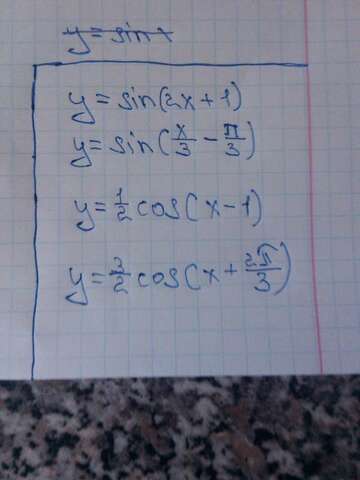 y = sin x
y = sin(2x + 1)
y = sin(x/3 - π/3)
y = 1/2 cos(x - 1)
y = 3/2 cos(x + 2π/3)